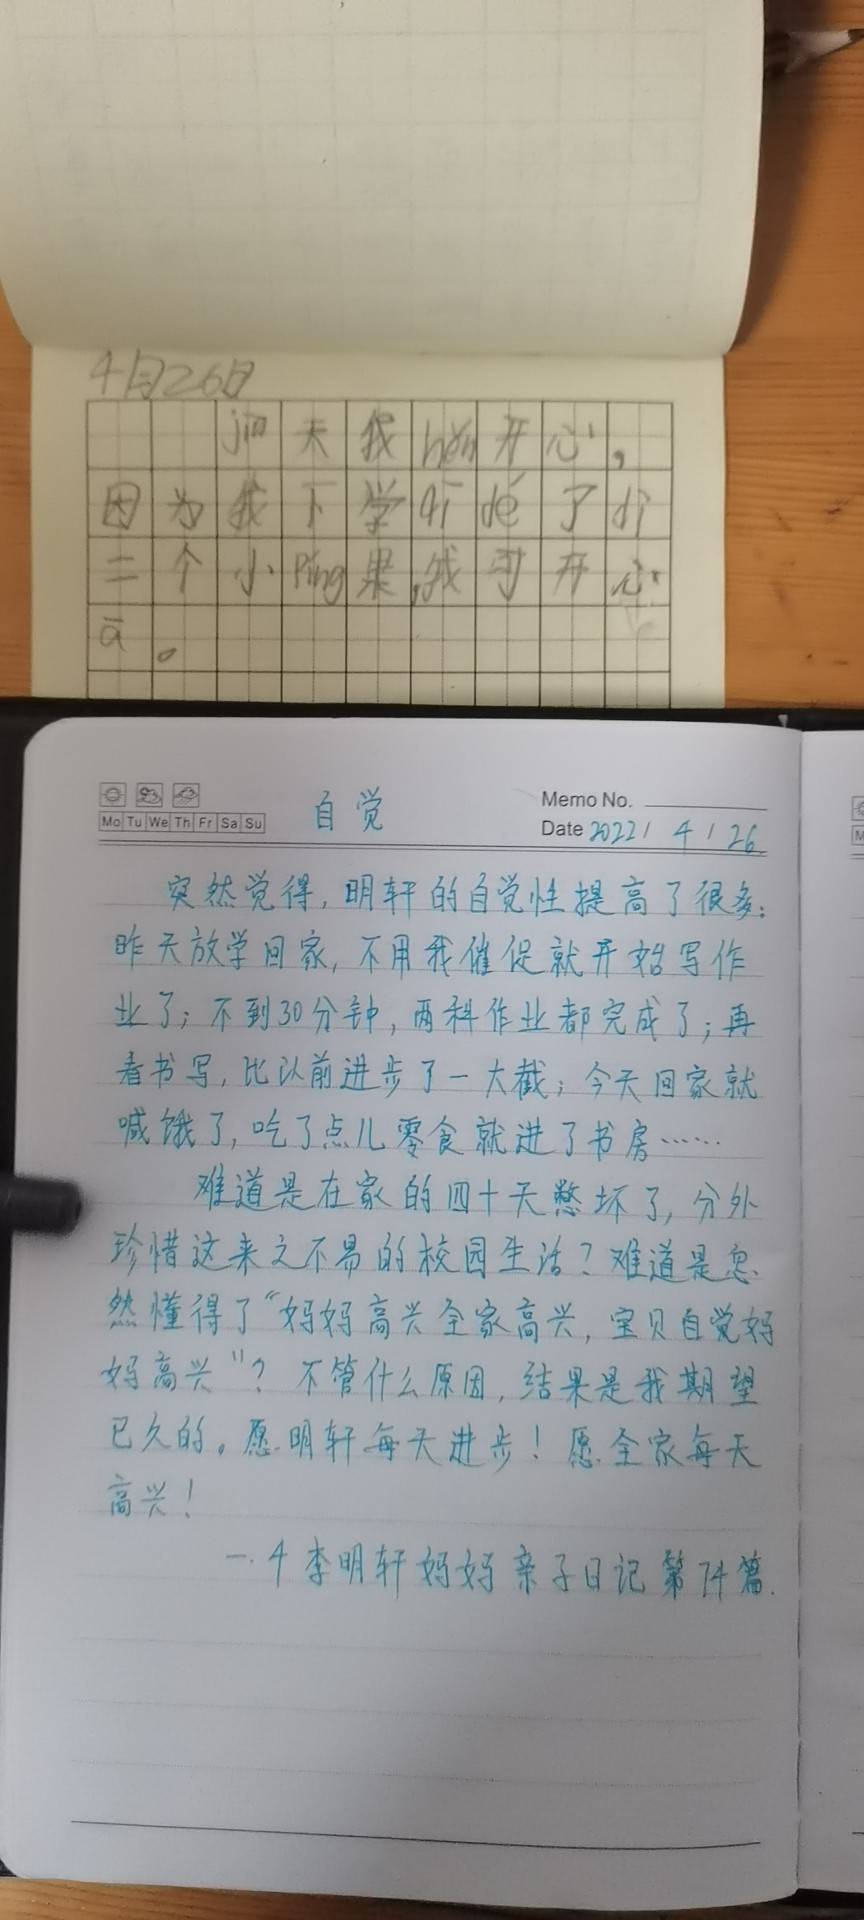 4月26日
jīn天我hěn开心,
因为我下学qī dé了dì
二个小Píng果,我可开心
ā。
Mo Tu We Th Fr Sa Su
自觉
Memo No.
Date 2022/4/26
突然觉得,明轩的自觉性提高了很多:
昨天放学回家,不用我催促就开始写作
业了;不到30分钟,两科作业都完成了;再
看书写,比以前进步了一大截;今天回家就
喊饿了,吃了点儿零食就进了书房……
难道是在家的四十天憋坏了,分外
珍惜这来之不易的校园生活?难道是忽
然懂得了“妈妈高兴全家高兴,宝贝自觉妈
妈高兴”?不管什么原因,结果是我期望
已久的。愿明轩每天进步!愿全家每天
高兴!
一.4李明轩妈妈亲子日记第74篇.